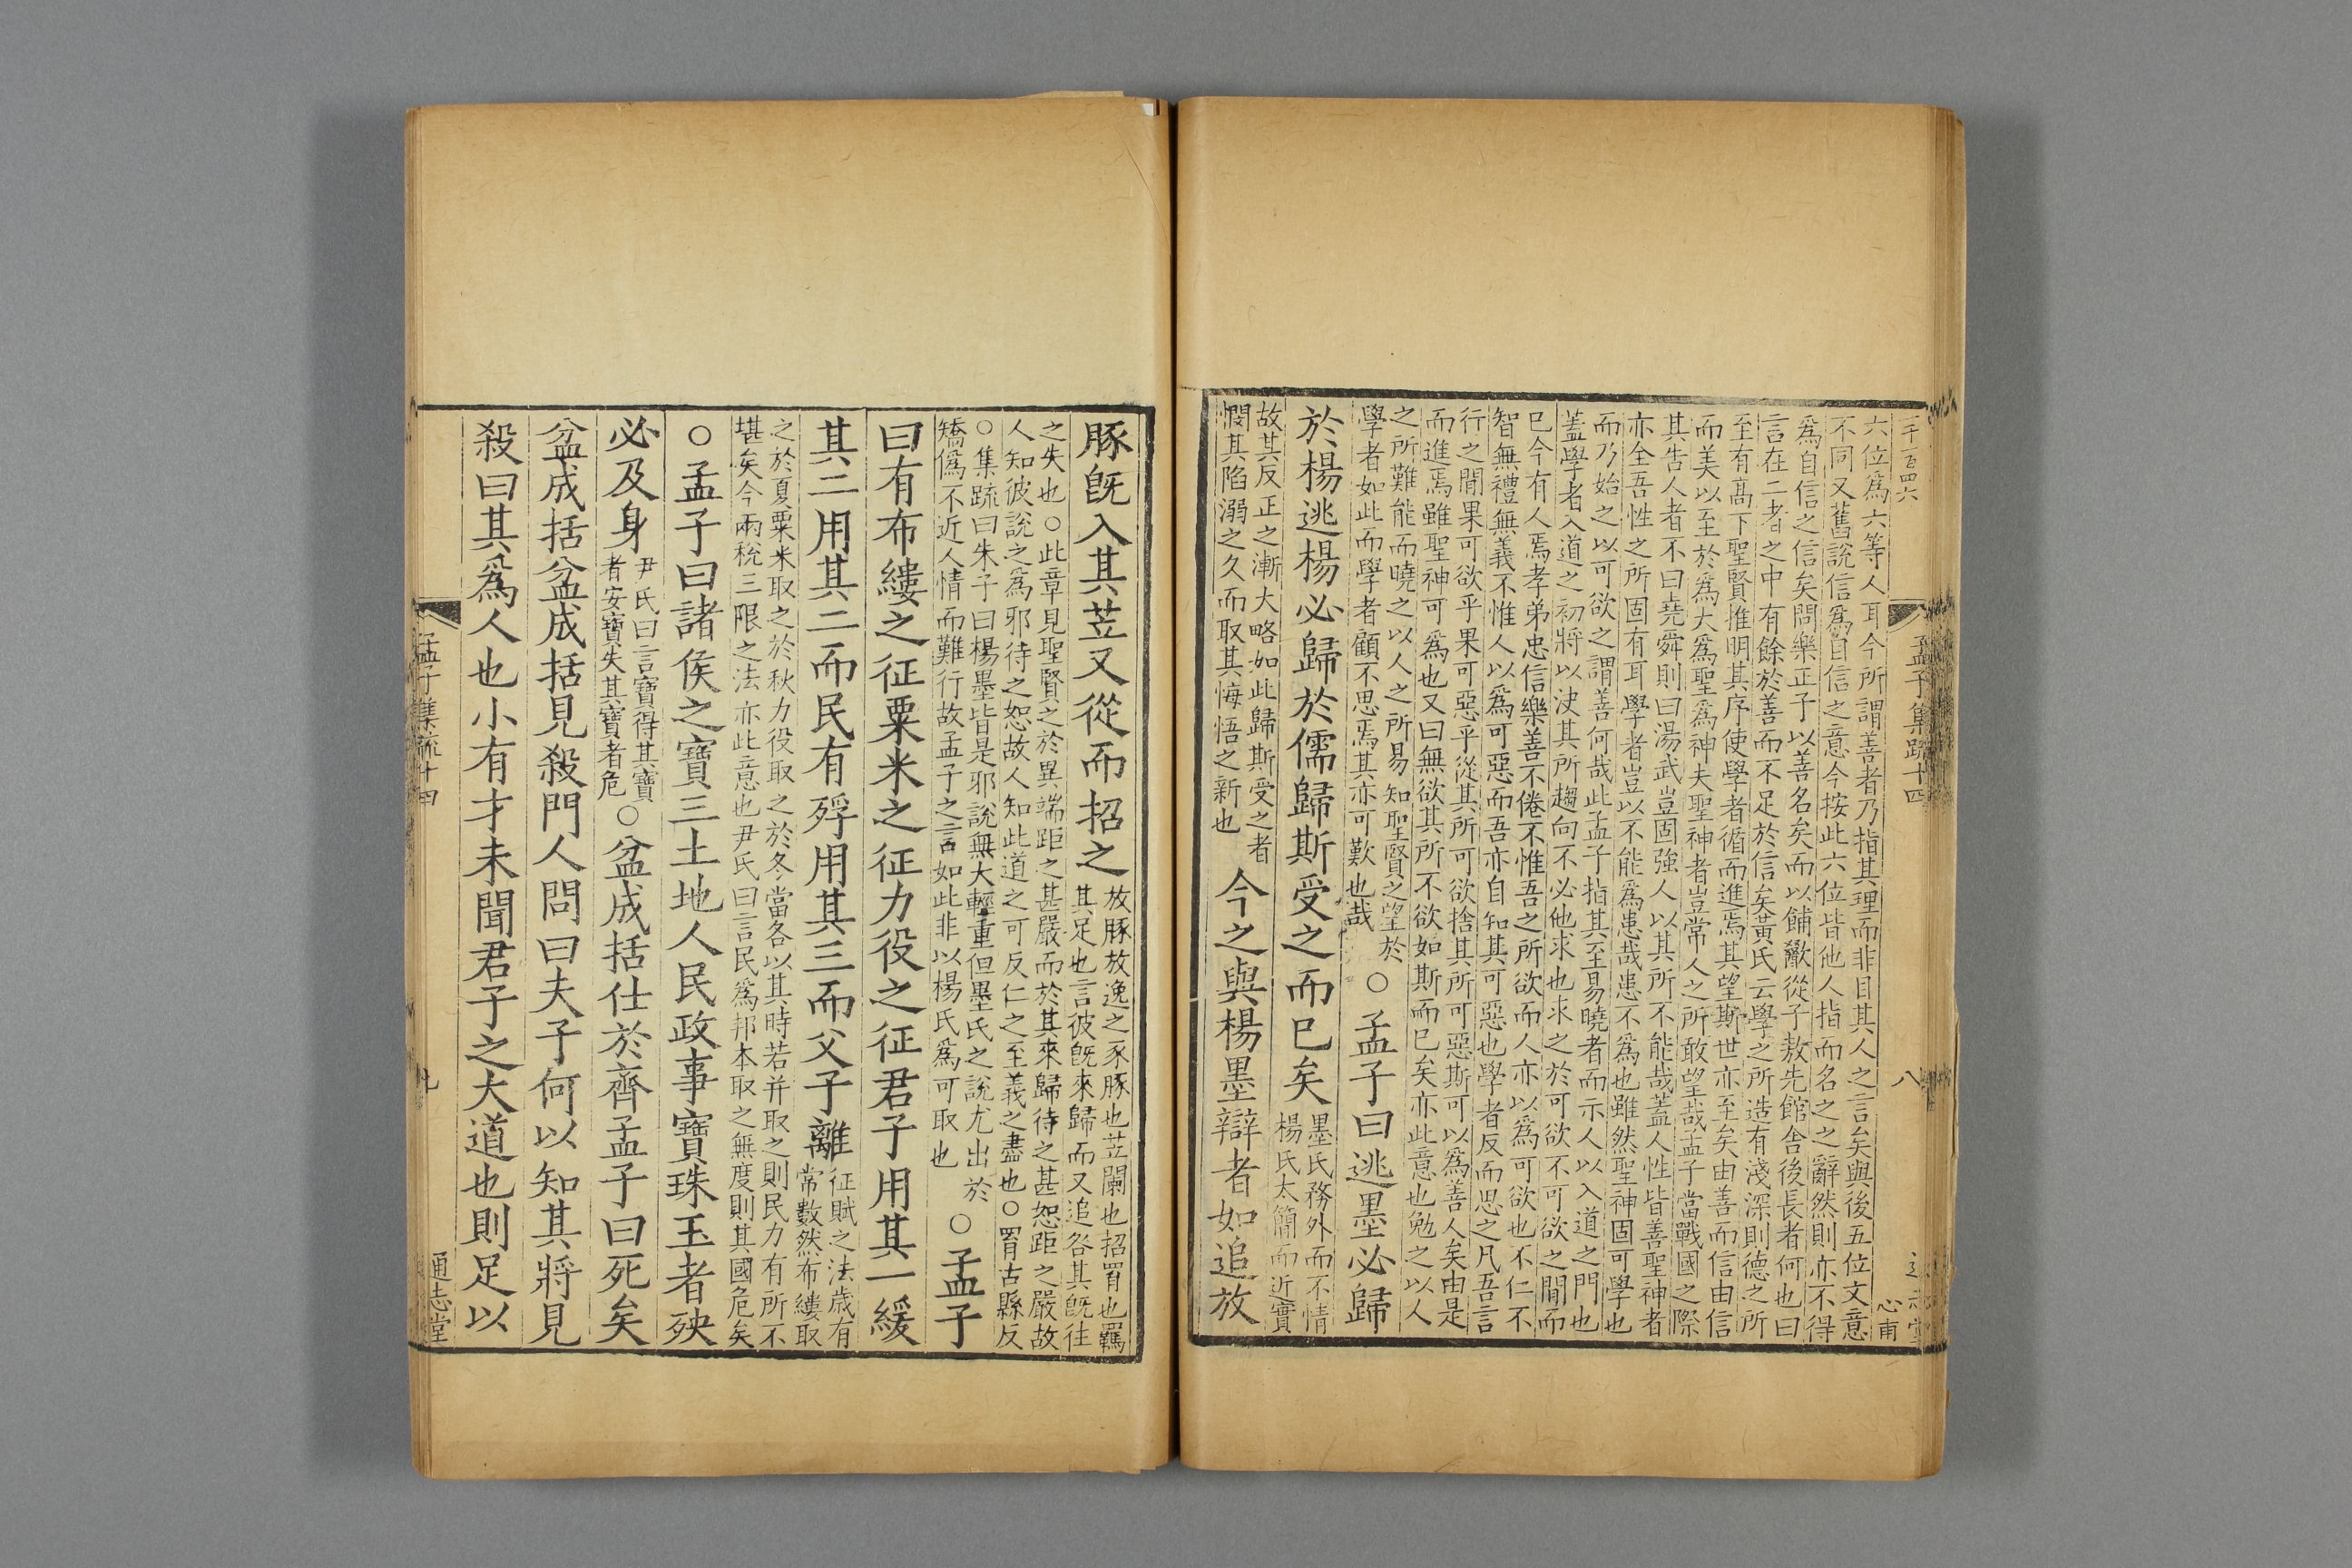 六位為六等人耳今所謂善者乃指其理而非目其人之言矣與後五位文意
不同又舊說信為自信之意今按此六位皆他人指而名之之辭然則亦不得
為自信之信矣問樂正子以善名矣而以餔歠從子敖先館舍後長者何也曰
言在二者之中有餘於善而不足於信矣黃氏云學之所造有淺深則德之所
至有高下聖賢推明其序使學者循而進焉其望斯世亦至矣由善而信由信
而美以至於為大為聖為神夫聖神者豈常人之所敢望哉孟子當戰國之際
其告人者不曰堯舜則曰湯武豈固強人以其所不能哉蓋人性皆善聖神者
亦全吾性之所固有耳學者豈以不能為患哉患不為也雖然聖神固可學也
而乃始之以可欲之謂善何哉此孟子指其至易曉者而示人以入道之門也
蓋學者入道之初將以決其所趨向不必他求也求之於可欲不可欲之間而
已今有人焉孝弟忠信樂善不倦不惟吾之所欲而人亦以為可欲也不仁不
智無禮無義不惟人以為可惡而吾亦自知其可惡也學者反而思之凡吾言
行之間果可欲乎果可惡乎從其所可欲捨其所可惡斯可以為善人矣由是
而進焉雖聖神可為也又曰無欲其所不欲如斯而已矣亦此意也勉之以人
之所難能而曉之以人之所易知聖賢之望於
學者如此而學者顧不思焉其亦可歎也哉
○孟子曰逃墨必歸
於楊逃楊必歸於儒歸斯受之而已矣
墨氏務外而不情
楊氏太簡而近實
故其反正之漸大略如此歸斯受之者
憫其陷溺之久而取其悔悟之新也
今之與楊墨辯者如追放
二千一百四六
孟子集疏十四
八
心甫
豚既入其苙又從而招之
放豚放逸之豕豚也苙闌也招罥也羈
其足也言彼既來歸而又追咎其既往
之失也○此章見聖賢之於異端距之甚嚴而於其來歸待之甚恕距之嚴故
人知彼說之為邪待之恕故人知此道之可反仁之至義之盡也○罥古縣反
○集疏曰朱子曰楊墨皆是邪說無大輕重但墨氏之說尤出於
矯偽不近人情而難行故孟子之言如此非以楊氏為可取也
○孟子
曰有布縷之征粟米之征力役之征君子用其一緩
其二用其二而民有殍用其三而父子離
征賦之法歲有
常數然布縷取
之於夏粟米取之於秋力役取之於冬當各以其時若并取之則民力有所不
堪矣今兩稅三限之法亦此意也尹氏曰言民為邦本取之無度則其國危矣
○孟子曰諸侯之寶三土地人民政事寶珠玉者殃
必及身
尹氏曰言寶得其寶
者安寶失其寶者危
○盆成括仕於齊孟子曰死矣
盆成括盆成括見殺門人問曰夫子何以知其將見
殺曰其為人也小有才未聞君子之大道也則足以
孟子集疏十四
九
通志堂